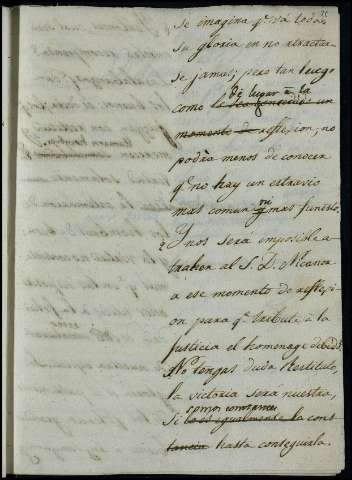 se imagina qᵉ vá toda
su gloria en no atractar
se jamas; pero tan luego
de lugar à la
como
momento de reflexion, no
podrà menos de conocer
qᵉ no hay un estravio
mas comun, ni mas funesto.
Y nos será imposible a-
traher al S. D. Nicanor
a ese momento de reflexi-
on para qᵉ tribute à la
justicia el homenage debido?
No tengas duda Restituto,
la victoria sera nuestra,
somos constantes
si la es igualmente la cons-
tancia hasta conseguirla.